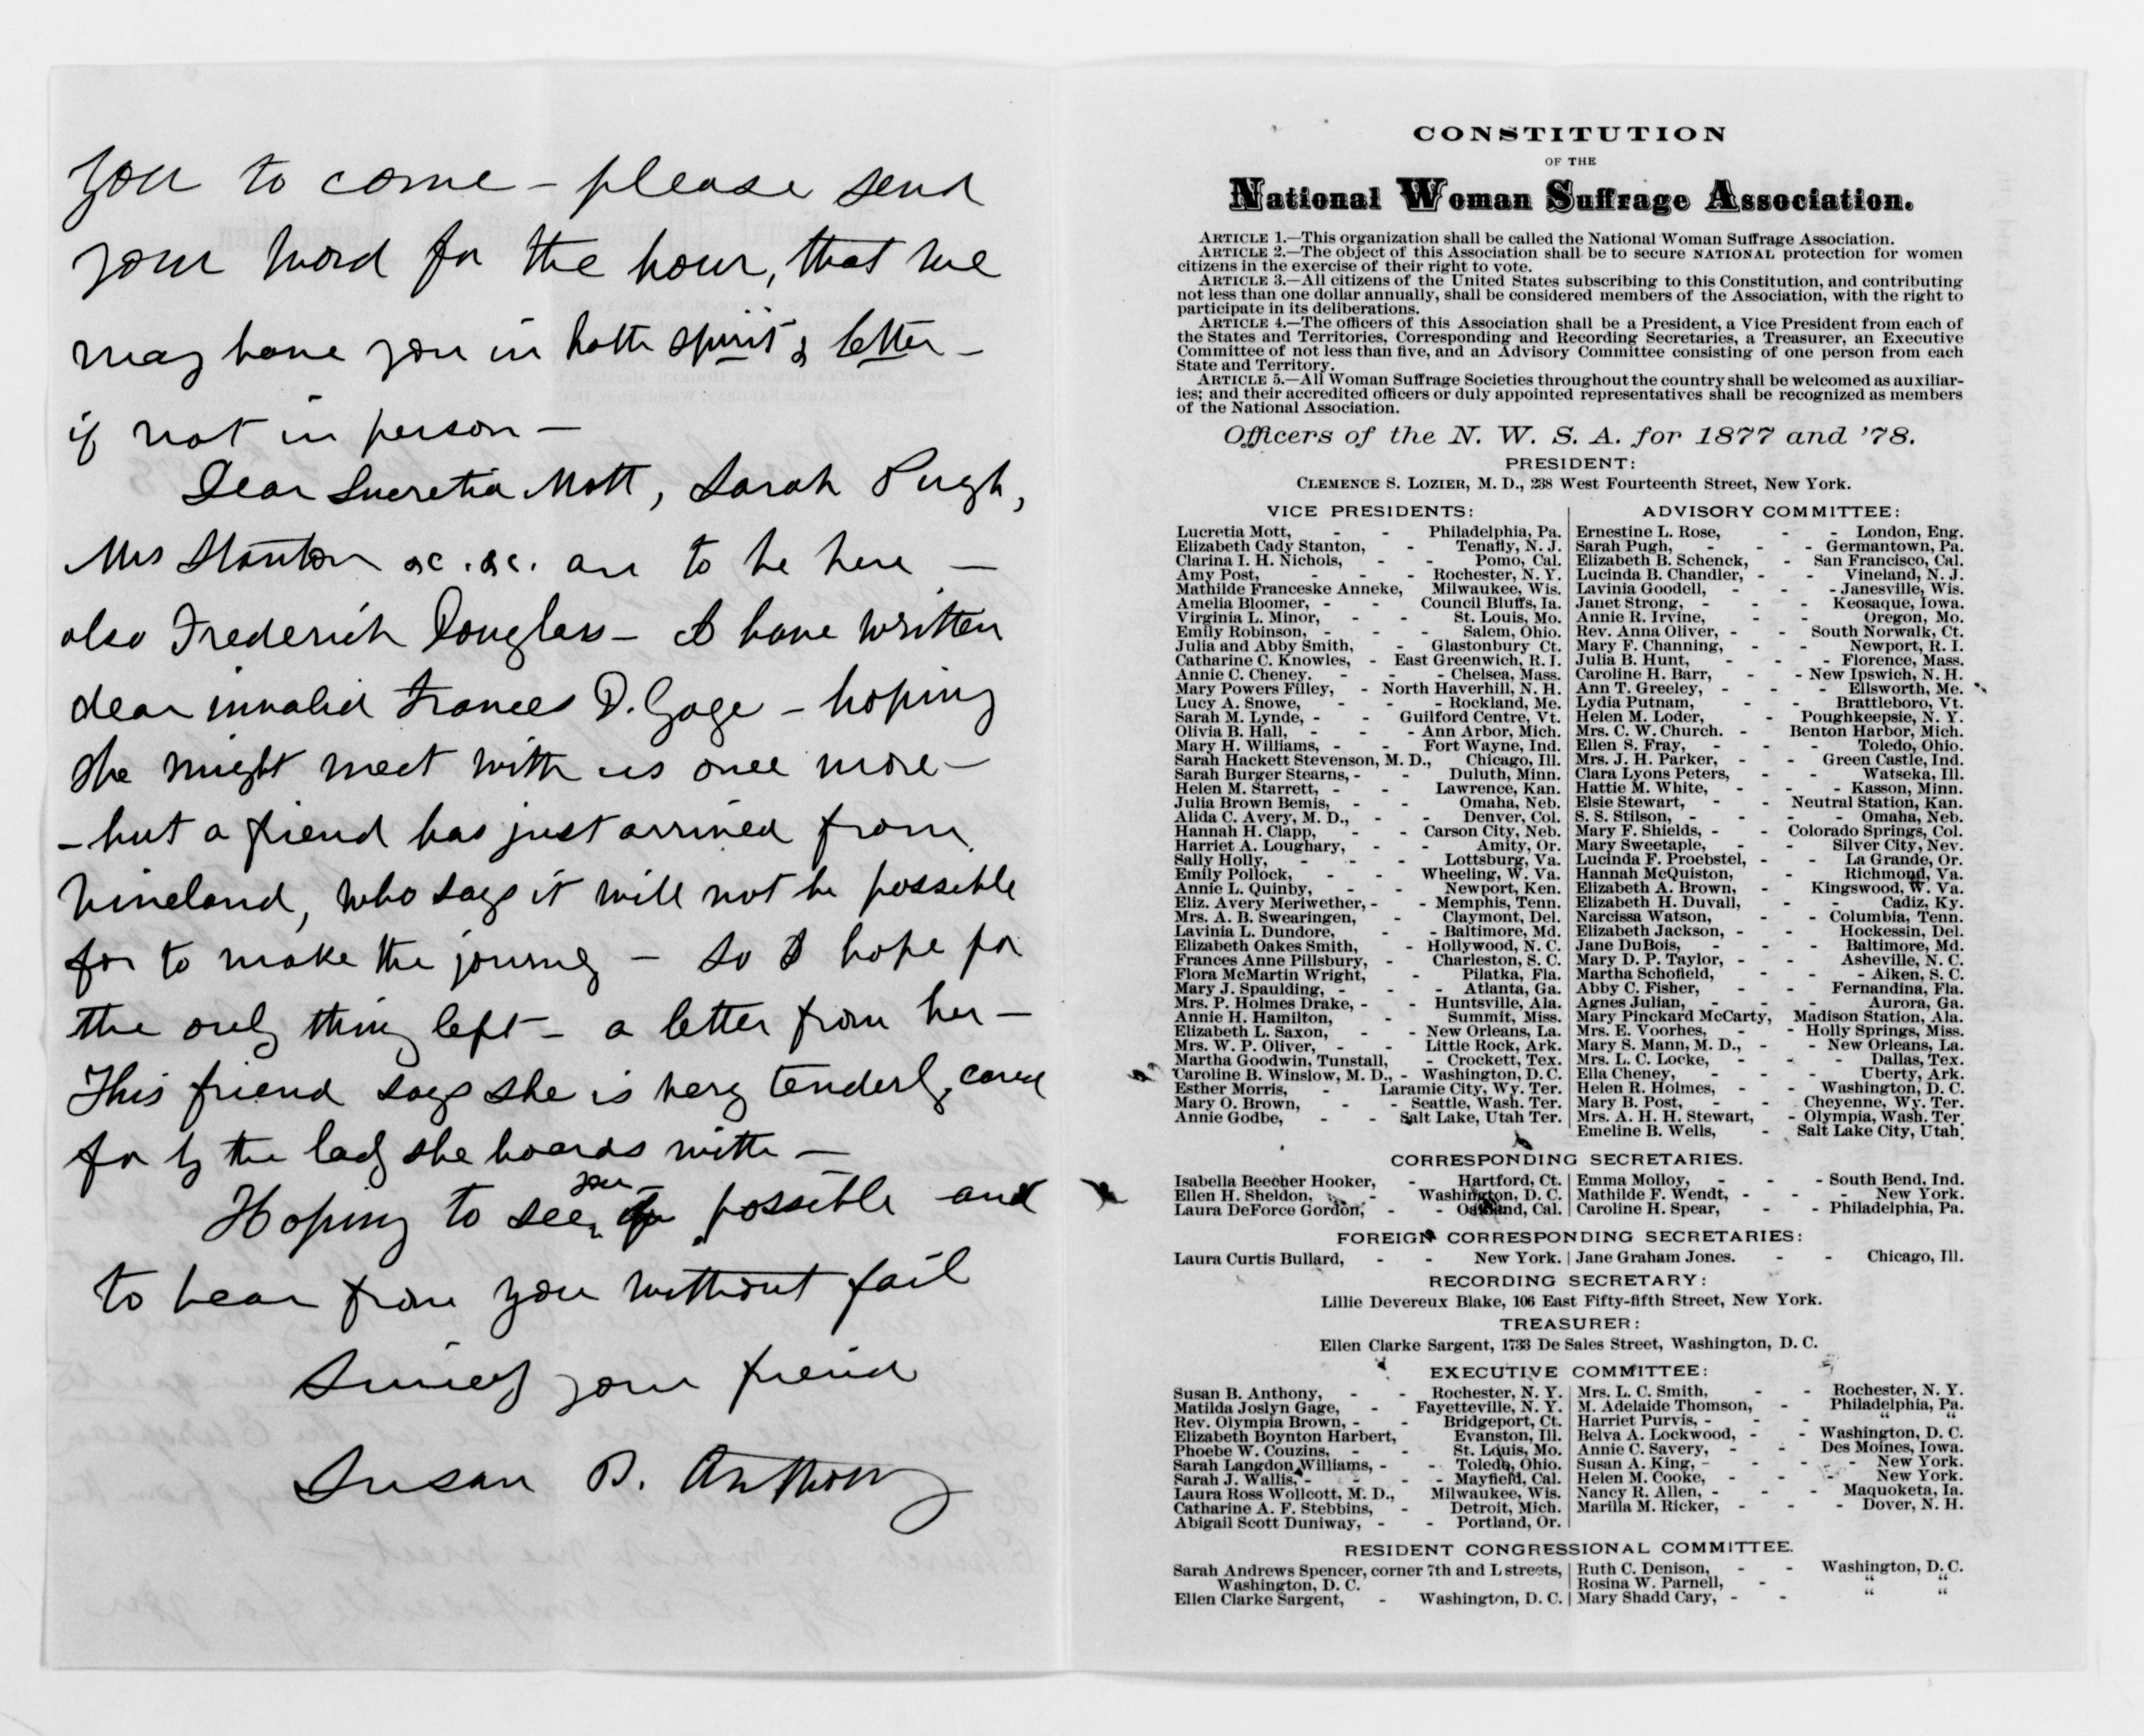 you to come - please send
your word for the hour, that we
may have you in both spirit & letter -
if not in person -
Dear Lucretia Mott, Sarah Pugh,
Mrs Stanton &c. &c. are to be here -
also Frederick Douglass - I have written
dear invalid Frances D. Gage - hoping
she might meet with us once more -
- but a friend has just arrived from
Vineland, who says it will not be possible
for to make the journey - so I hope for
the only thing left - a letter from her -
This friend says she is very tenderly cared
for by the lady she boards with -
Hoping to see you if possible and
to hear from you without fail
Sincerely your friend
Susan B. Anthony
CONSTITUTION
OF THE
National Woman Suffrage Association.
ARTICLE 1.—This organization shall be called the National Woman Suffrage Association.
ARTICLE 2.—The object of this Association shall be to secure NATIONAL protection for women
citizens in the exercise of their right to vote.
ARTICLE 3.—All citizens of the United States subscribing to this Constitution, and contributing
not less than one dollar annually, shall be considered members of the Association, with the right to
participate in its deliberations.
ARTICLE 4.—The officers of this Association shall be a President, a Vice President from each of
the States and Territories, Corresponding and Recording Secretaries, a Treasurer, an Executive
Committee of not less than five, and an Advisory Committee consisting of one person from each
State and Territory.
ARTICLE 5.—All Woman Suffrage Societies throughout the country shall be welcomed as auxiliar-
ies; and their accredited officers or duly appointed representatives shall be recognized as members
of the National Association.
Officers of the N. W. S. A. for 1877 and '78.
PRESIDENT:
CLEMENCE S. LOZIER, M. D., 238 West Fourteenth Street, New York.
VICE PRESIDENTS:
Lucretia Mott, - - Philadelphia, Pa.
Elizabeth Cady Stanton, - Tenafly, N. J.
Clarina I. H. Nichols, - Pomo, Cal.
Amy Post, - - - Rochester, N. Y.
Mathilde Franceske Anneke, Milwaukee, Wis.
Amelia Bloomer, - - Council Bluffs, Ia.
Virginia L. Minor, - - St. Louis, Mo.
Emily Robinson, - - - Salem, Ohio.
Julia and Abby Smith, - Glastonbury Ct.
Catharine C. Knowles, - East Greenwich, R. I.
Annie C. Cheney. - - - Chelsea, Mass.
Mary Powers Filley, - North Haverhill, N. H.
Lucy A. Snowe, - - - Rockland, Me.
Sarah M. Lynde, - - Guilford Centre, Vt.
Olivia B. Hall, - - - Ann Arbor, Mich.
Mary H. Williams, - - Fort Wayne, Ind.
Sarah Hackett Stevenson, M. D., Chicago, Ill.
Sarah Burger Stearns, - - Duluth, Minn.
Helen M. Starrett, - - Lawrence, Kan.
Julia Brown Bemis, - - Omaha, Neb.
Alida C. Avery, M. D., - - Denver, Col.
Hannah H. Clapp, - - Carson City, Neb.
Harriet A. Loughary, - - Amity, Or.
Sally Holly, - - - Lottsburg, Va.
Emily Pollock, - - Wheeling, W. Va.
Annie L. Quinby, - - Newport, Ken.
Eliz. Avery Meriwether, - - Memphis, Tenn.
Mrs. A. B. Swearingen, - Claymont, Del.
Lavinia L. Dundore, - - Baltimore, Md.
Elizabeth Oakes Smith, - Hollywood, N. C.
Frances Anne Pillsbury, - Charleston, S. C.
Flora McMartin Wright, - Pilatka, Fla.
Mary J. Spaulding, - - - Atlanta, Ga.
Mrs. P. Holmes Drake, - - Huntsville, Ala.
Annie H. Hamilton, - Summit, Miss.
Elizabeth L. Saxon, - - New Orleans, La.
Mrs. W. P. Oliver, - - Little Rock, Ark.
Martha Goodwin, Tunstall, - Crockett, Tex.
Caroline B. Winslow, M. D., - Washington, D. C.
Esther Morris, - Laramie City, Wy. Ter.
Mary O. Brown, - - Seattle, Wash. Ter.
Annie Godbe, - - Salt Lake, Utah Ter.
ADVISORY COMMITTEE:
Ernestine L. Rose, - - London, Eng.
Sarah Pugh, - - - Germantown, Pa.
Elizabeth B. Schenck, - San Francisco, Cal.
Lucinda B. Chandler, - - Vineland, N. J.
Lavinia Goodell, - - - Janesville, Wis.
Janet Strong, - - - Keosaque, Iowa.
Annie R. Irvine, - - Oregon, Mo.
Rev. Anna Oliver, - - South Norwalk, Ct.
Mary F. Channing, - - Newport, R. I.
Julia B. Hunt, - - - Florence, Mass.
Caroline H. Barr, - - New Ipswich, N. H.
Ann T. Greeley, - - - Ellsworth, Me.
Lydia Putnam, - - Brattleboro, Vt.
Helen M. Loder, - Poughkeepsie, N. Y.
Mrs. C. W. Church. - Benton Harbor, Mich.
Ellen S. Fray, - - - Toledo, Ohio.
Mrs. J. H. Parker, - - Green Castle, Ind.
Clara Lyons Peters, - - Watseka, Ill.
Hattie M. White, - - - Kasson, Minn.
Elsie Stewart, - - Neutral Station, Kan.
S. S. Stilson, - - - - Omaha, Neb.
Mary F. Shields, - - Colorado Springs, Col.
Mary Sweetaple, - - Silver City, Nev.
Lucinda F. Proebstel, - - La Grande, Or.
Hannah McQuiston, - Richmond, Va.
Elizabeth A. Brown, - Kingswood, W. Va.
Elizabeth H. Duvall, - - Cadiz, Ky.
Narcissa Watson, - - Columbia, Tenn.
Elizabeth Jackson, - - Hockessin, Del.
Jane DuBois, - - - Baltimore, Md.
Mary D. P. Taylor, - - Asheville, N. C.
Martha Schofield, - - - Aiken, S. C.
Abby C. Fisher, - - Fernandina, Fla.
Agnes Julian, - - - Aurora, Ga.
Mary Pinckard McCarty, Madison Station, Ala.
Mrs. E. Voorhes, - - Holly Springs, Miss.
Mary S. Mann, M. D., - - New Orleans, La.
Mrs. L. C. Locke, - - - Dallas, Tex.
Ella Cheney, - - - Uberty, Ark.
Helen R. Holmes, - - Washington, D. C.
Mary B. Post, - - Cheyenne, Wy. Ter.
Mrs. A. H. H. Stewart, - Olympia, Wash. Ter
Emeline B. Wells, - Salt Lake City, Utah.
CORRESPONDING SECRETARIES.
Isabella Beecher Hooker, - Hartford, Ct.
Ellen H. Sheldon, - - Washington, D. C.
Laura DeForce Gordon, - - Oakland, Cal.
Emma Molloy, - - - South Bend, Ind.
Mathilde F. Wendt, - - - New York.
Caroline H. Spear, - - Philadelphia, Pa.
FOREIGN CORRESPONDING SECRETARIES:
Laura Curtis Bullard, - - New York. | Jane Graham Jones. - - Chicago, Ill.
RECORDING SECRETARY:
Lillie Devereux Blake, 106 East Fifty-fifth Street, New York.
TREASURER:
Ellen Clarke Sargent, 1733 De Sales Street, Washington, D. C.
EXECUTIVE COMMITTEE:
Susan B. Anthony, - - Rochester, N. Y.
Matilda Joslyn Gage, - Fayetteville, N. Y.
Rev. Olympia Brown, - - Bridgeport, Ct.
Elizabeth Boynton Harbert, Evanston, Ill.
Phoebe W. Couzins, - - St. Louis, Mo.
Sarah Langdon Williams, - - Toledo, Ohio.
Sarah J. Wallis, - - - Mayfield, Cal.
Laura Ross Wollcott, M. D., Milwaukee, Wis.
Catharine A. F. Stebbins, - Detroit, Mich.
Abigail Scott Duniway, - - Portland, Or.
Mrs. L. C. Smith, - - Rochester, N. Y.
M. Adelaide Thomson, - Philadelphia, Pa.
Harriet Purvis, - - - “ “
Belva A. Lockwood, - - Washington, D. C.
Annie C. Savery, - - Des Moines, Iowa.
Susan A. King, - - - New York.
Helen M. Cooke, - - - New York.
Nancy R. Allen, - - - Maquoketa, Ia.
Marilla M. Ricker, - - - Dover, N. H.
RESIDENT CONGRESSIONAL COMMITTEE.
Sarah Andrews Spencer, corner 7th and L streets,
Washington, D. C.
Ellen Clarke Sargent, - Washington, D. C.
Ruth C. Denison, - - Washington, D. C.
Rosina W. Parnell, - “ “
Mary Shadd Cary, - - “ “